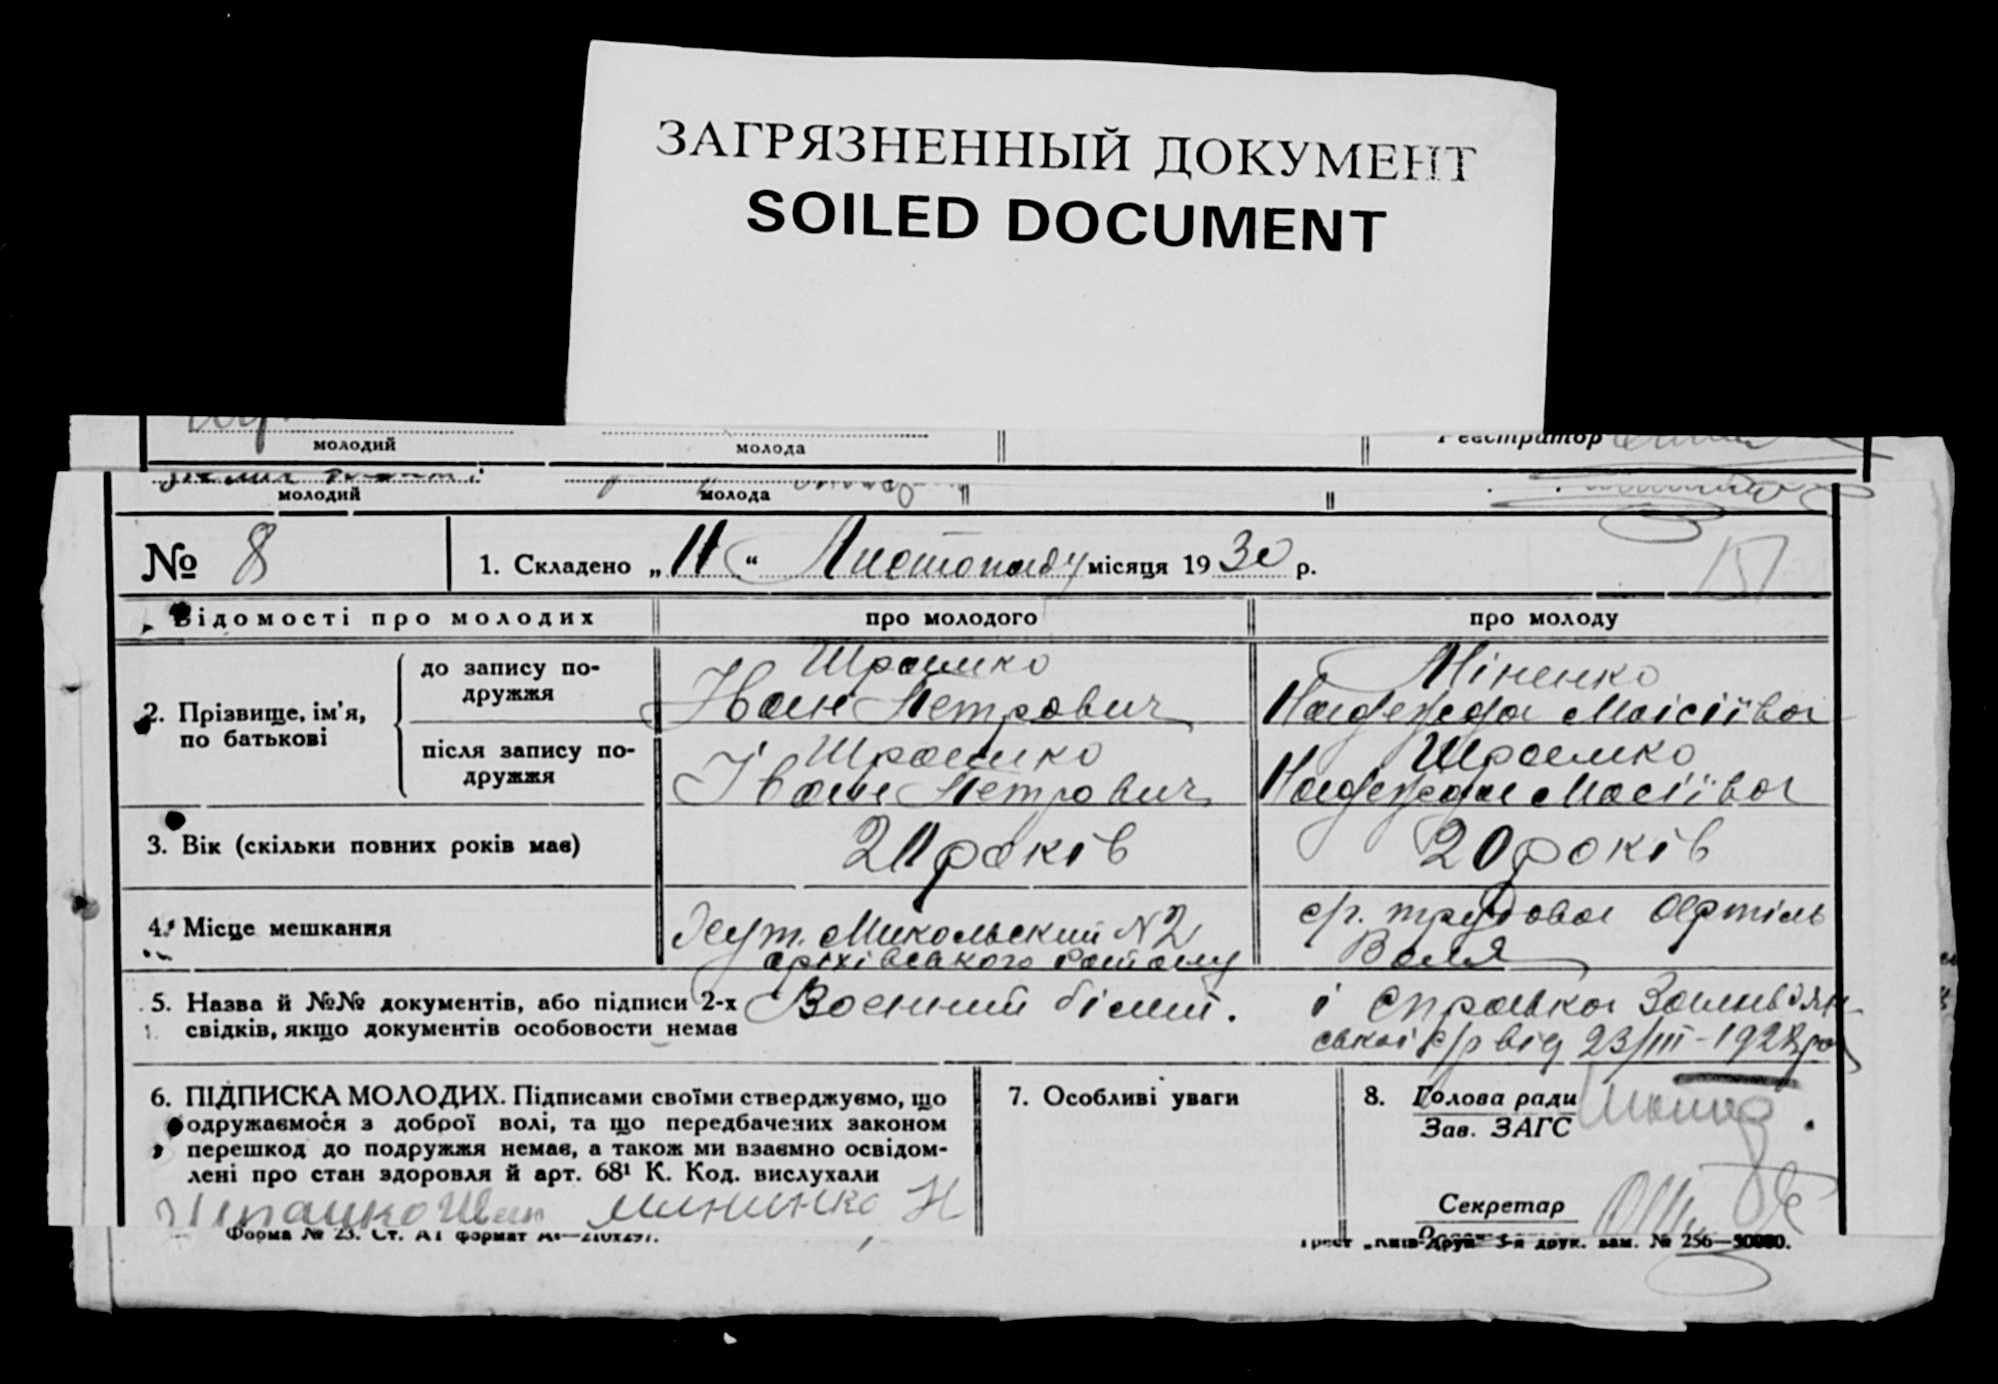 ЗАГРЯЗНЕННЫЙ ДОКУМЕНТ
SOILED DOCUMENT
молодий молода Реєстратор
молодий молода
№ 8 1. Складено „11“ Листопаду місяця 1930 р.
Відомості про молодих про молодого про молоду
2. Прізвище, ім'я, по батькові
до запису подружжя
Іван Петрович
Міненко
Надежда Маісіївна
після запису подружжя
Іван Петрович
Надежда
3. Вік (скільки повних років має) 20 років
4. Місце мешкання
Хут. Микольский N2
с/г. трудова Артіль
Воля
5. Назва й №№ документів, або підписи 2-х
свідків, якщо документів особовости немає
Воєнний білет.
і Справка
від 23/III-192
6. ПІДПИСКА МОЛОДИХ. Підписами своїми стверджуємо, що
одружаємося з доброї волі, та що передбачених законом
перешкод до подружжя немає, а також ми взаємно освідом-
лені про стан здоровля й арт. 68¹ К. Код. вислухали
Іван Миненко Н
7. Особливі уваги
8. Голова ради
Зав. ЗАГС
Секретар
Форма № 23. Ст. А1 формат
Трест „Київ-Друк“ 3-я друк. зам. № 256—50000.